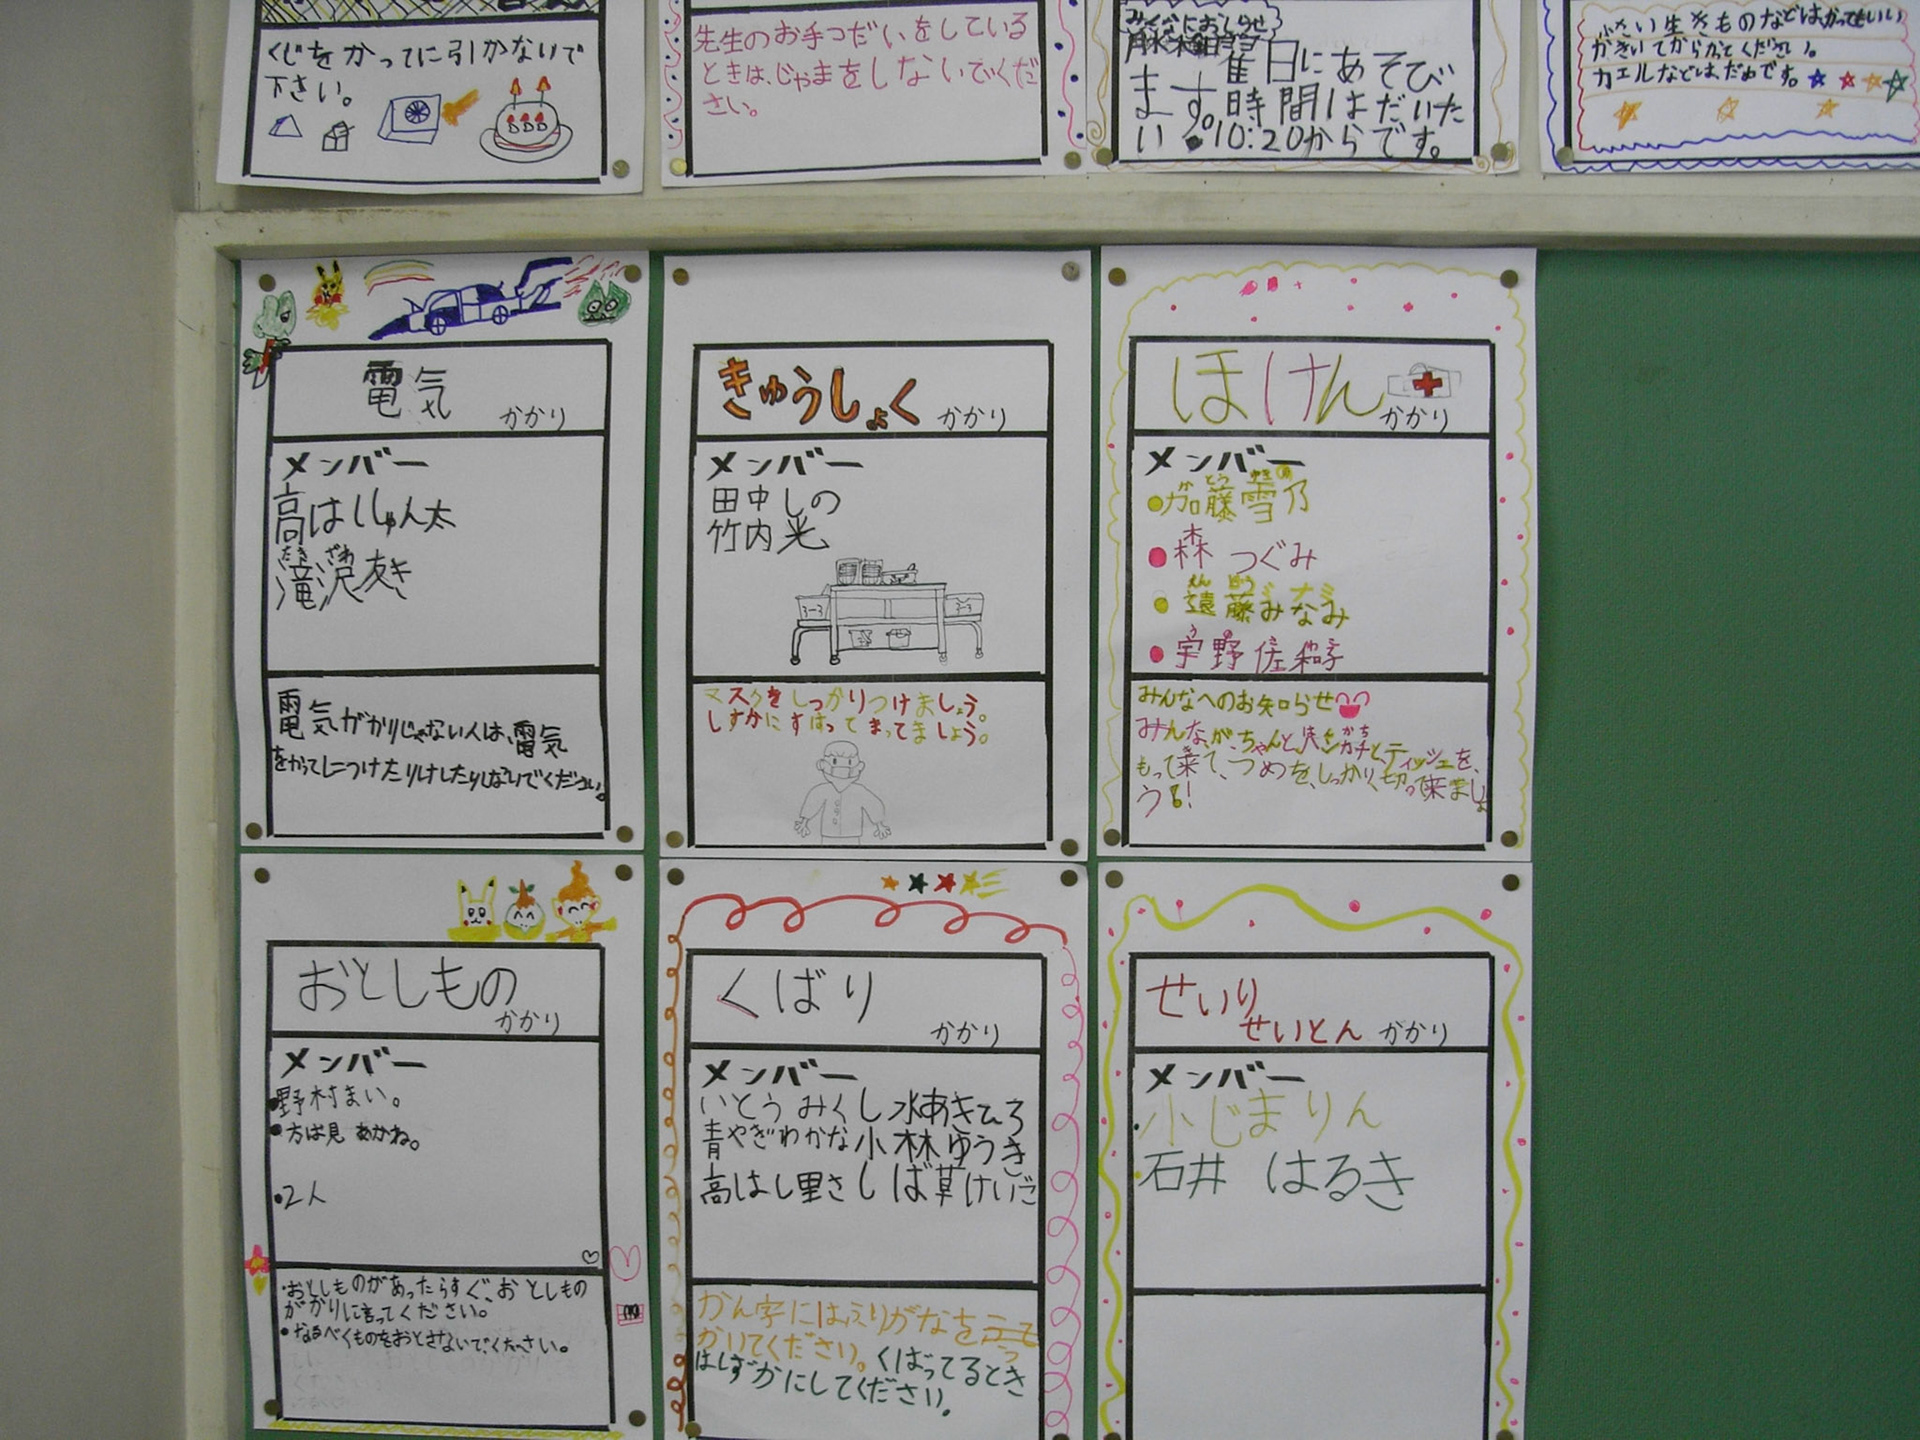 くじをかってに引かないで
下さい。
先生のお手つだいをしている
ときは、じゃまをしないでくだ
さい。
みんなにおしらせ
日にあそび
ます。時間はだいた
い10:20からです。
小さい生きものなどはかってもいい
かきいてからかってください。
カエルなどはだめです。
電気 かかり
メンバー
高はしじゅん太
たき ざわ
滝沢友き
電気がかりじゃない人は、電気
をかってにつけたりけしたりしないでください。
きゅうしょく かかり
メンバー
田中しの
竹内光
3-3
3-3
マスクをしっかりつけましょう。
しずかにすわってまってましょう。
ほけん かかり
メンバー
か とう ゆき の
加藤雪乃
森 つぐみ
えん どう ミナミ
遠藤みなみ
宇野佐和子
みんなへのお知らせ
みんなが、ちゃんと、ハンカチと、ティッシュを、
もって来て、つめを、しっかり、切って来ましょ
う!
おとしもの かかり
メンバー
・野村まい。
・方は見 あかね。
・2人
・おとしものがあったらすぐ、おとしもの
がかりに言ってください。
・なるべくものをおとさないでください。
くばり かかり
メンバー
いとう みく し水あきひろ
青やぎわかな 小林ゆうき
高はし里さ しば草けいご
かん字にはふりがなをふって
かいてください。くばってるとき
はしずかにしてください。
せいり
せいとん かかり
メンバー
・小じまりん
・石井 はるき